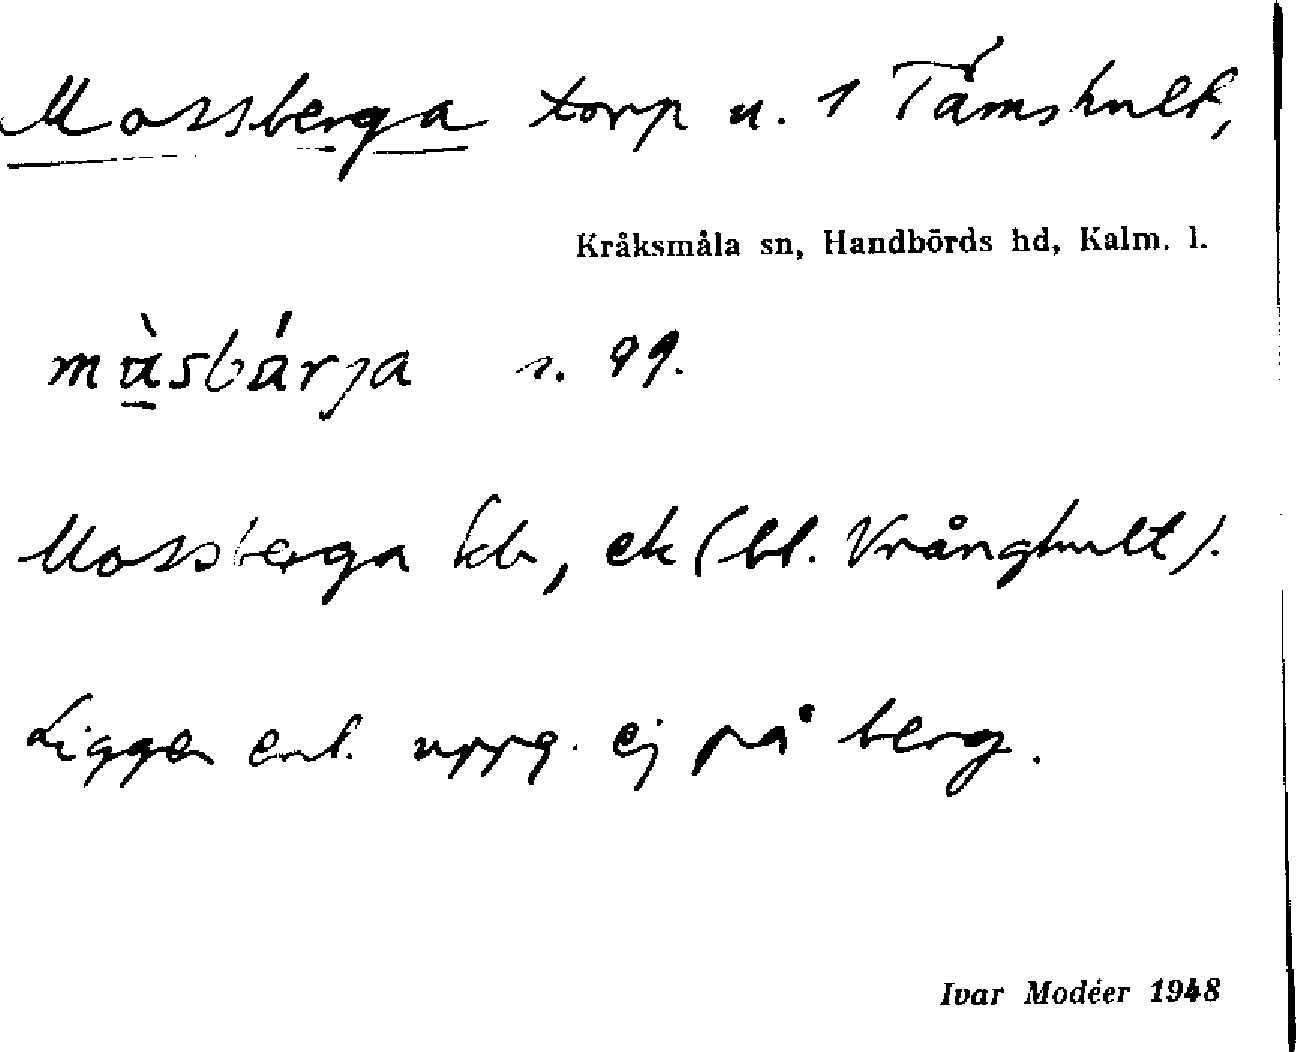 Mossberga torp u. 1 Tåmshult,
Kråksmåla sn, Handbörds hd, Kalm. l.
mùsbárja s. 99.
Mossberga kb, ek (bl. Vrånghult).
Ligger enl. uppg. ej på berg.
Ivar Modéer 1948